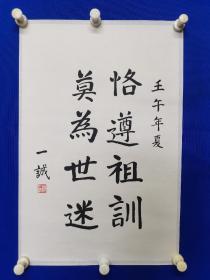 壬午年夏
恪遵祖訓
莫為世迷
一誠